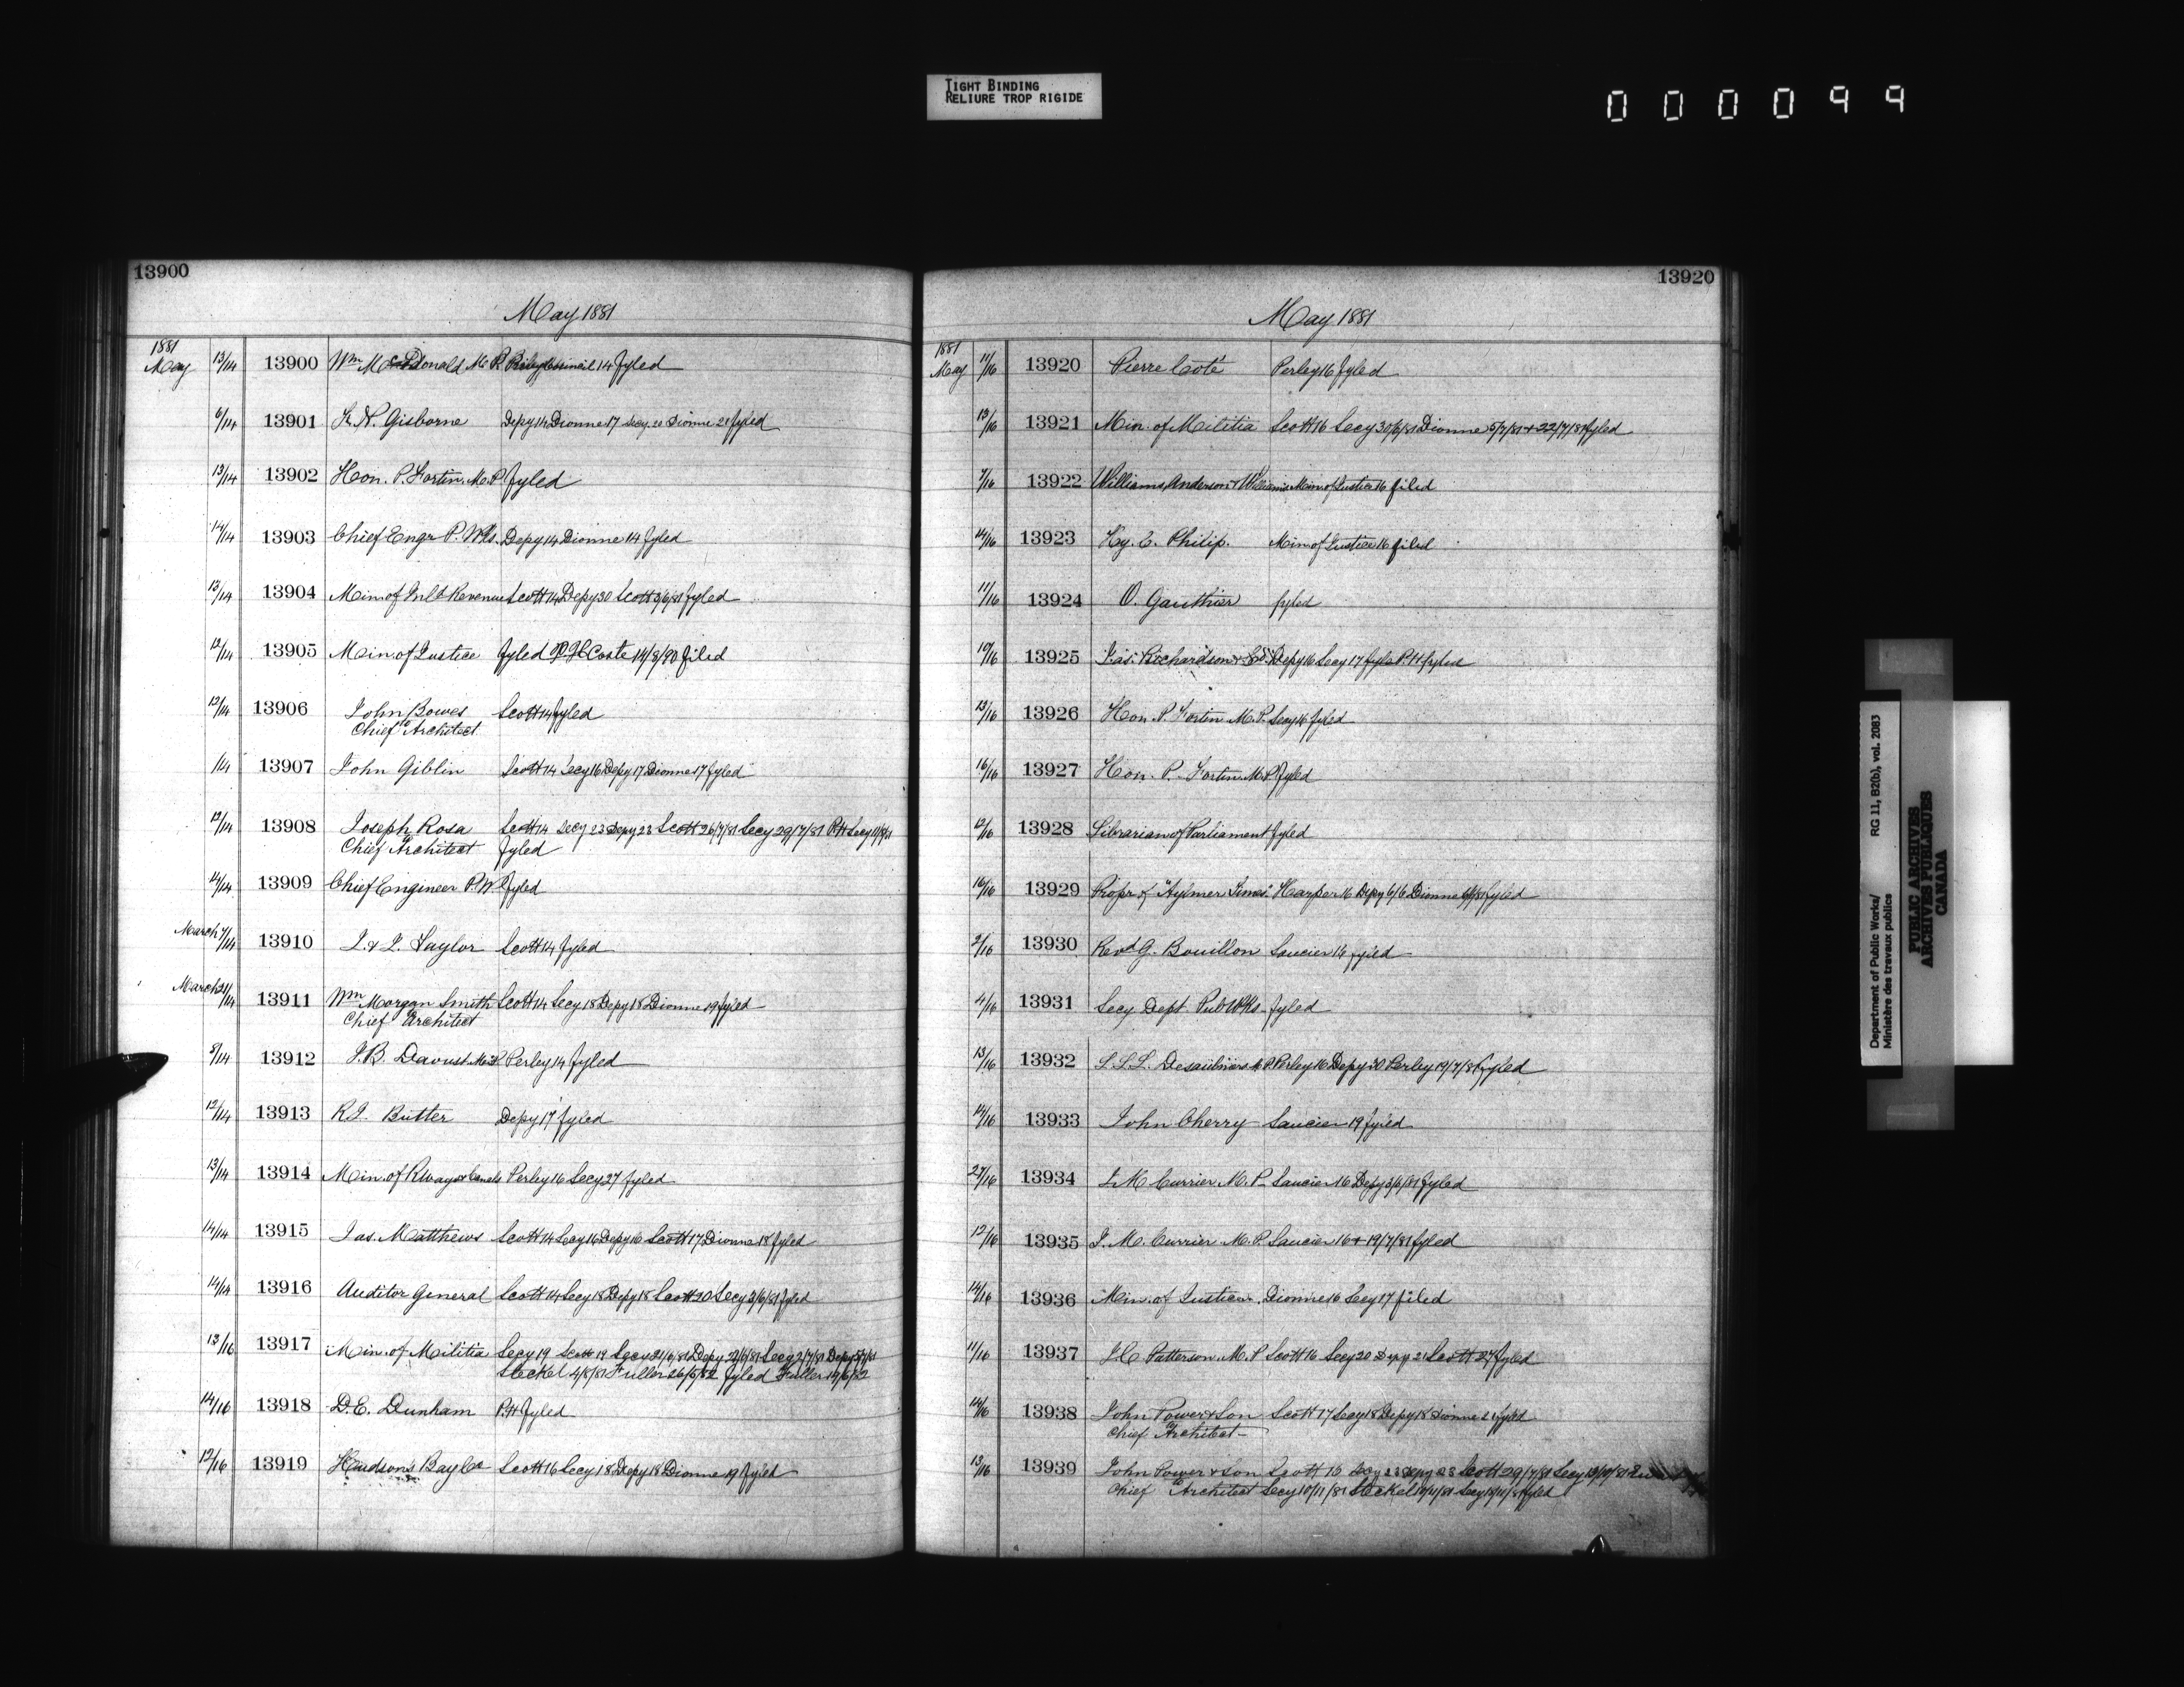 TIGHT BINDING
RELIURE TROP RIGIDE
000099
13900
May 1881
1881
May 13/14 13900 Wm McDonald M.P. Perley 14 fyled
6/14 13901 F. N. Gisborne Depy 14 Dionne 17 Secy 20 Dionne 21 fyled
13/14 13902 Hon. P. Fortin. M.P. fyled
14/14 13903 Chief Engr P. Wks. Depy 14 Dionne 14 fyled
13/14 13904 Min. of Inld Revenue Scott 14 Depy 30 Scott 3/6/81 fyled
12/14 13905 Min. of Justice fyled Coste 14/8/90 filed
12/14 13906 John Bowes Scott 14 fyled
Chief Architect
/14 13907 John Giblin Scott 14 Secy 16 Depy 17 Dionne 17 fyled
12/14 13908 Joseph Rosa Scott 14 Secy 23 Depy 23 Scott 26/7/81 Secy 29/7/81 P.H. Secy
Chief Architect fyled
14/14 13909 Chief Engineer P.W. fyled
March 7/14 13910 J. & J. Taylor Scott 14 fyled
March 21/14 13911 Wm Morgan Smith Scott 14 Secy 18 Depy 18 Dionne 19 fyled
Chief Architect
5/14 13912 J.B. Daoust M.P. Perley 14 fyled
12/14 13913 R.J. Butter Depy 17 fyled
13/14 13914 Min. of Rways & Canals Perley 16 Secy 27 fyled
14/14 13915 Jas. Matthews Scott 14 Secy 16 Depy 16 Scott 17 Dionne 18 fyled
14/14 13916 Auditor General Scott 14 Secy 18 Depy 18 Scott 20 Secy 3/6/81 fyled
13/16 13917 Min. of Militia Secy 19 Scott 19 Secy 21/6/81 Depy 22/6/81 Secy 2/7/81 Depy
Steckel 4/8/81 Fuller 26/5/82 fyled Fuller 14/6/82
14/16 13918 D.E. Dunham P.H. fyled
12/16 13919 Hudson's Bay Co Scott 16 Secy 18 Depy 18 Dionne 19 fyled
13920
May 1881
1881
May 11/16 13920 Pierre Coté Perley 16 fyled
13/16 13921 Min. of Militia Scott 16 Secy 30/6/81 Dionne 5/7/81 + 22/7/81 fyled
7/16 13922 Williams, Anderson & Williams Min. of Justice 16 filed
14/16 13923 Hy. C. Philip. Min. of Justice 16 filed
11/16 13924 O. Gauthier fyled
10/16 13925 Jas. Richardson & Co. Depy 16 Secy 17 fyle P.H. fyled
13/16 13926 Hon. P. Fortin M.P. Secy 16 fyled
16/16 13927 Hon. P. Fortin M.P. fyled
12/16 13928 Librarian of Parliament fyled
16/16 13929 Propr of "Aylmer Times" Harper 16 Depy 6/6 Dionne fyled
2/16 13930 Revd G. Bouillon Saucier 16 fyled
4/16 13931 Secy Dept Pub Wks fyled
13/16 13932 L.L.L. Desaulniers M.P. Perley 16 Depy 30 Perley 19/7/81 fyled
14/16 13933 John Cherry Saucier 19 fyled
27/16 13934 J. M. Currier M.P. Saucier 16 Depy 3/6/81 fyled
12/16 13935 J. M. Currier M.P. Saucier 16 + 19/7/81 fyled
14/16 13936 Min. of Justice. Dionne 16 Secy 17 filed
11/16 13937 J.C. Patterson M.P. Scott 16 Secy 20 Depy 21 Scott 27 fyled
14/16 13938 John Power & Son Scott 17 Secy 18 Depy 18 Dionne 21 fyled
Chief Architect
13/16 13939 John Power & Son Scott 16 Secy 23 Depy 23 Scott 29/7/81 Secy 19/10/81
Chief Architect Secy 10/11/81 Steckel 10/11/81 Secy fyled
Department of Public Works/ RG 11, B2(b), vol. 2083
Ministère des travaux publics
PUBLIC ARCHIVES
ARCHIVES PUBLIQUES
CANADA